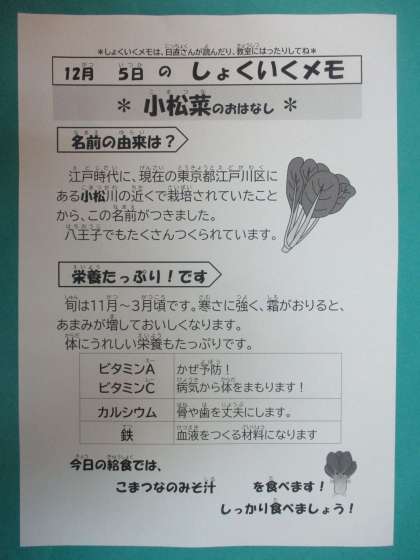 ＊しょくいくメモは、日直さんが読んだり、教室にはったりしてね＊
12月　5日 の　しょくいくメモ
＊ 小松菜のおはなし ＊
名前の由来は？
江戸時代に、現在の東京都江戸川区に
ある小松川の近くで栽培されていたこと
から、この名前がつきました。
八王子でもたくさんつくられています。
栄養たっぷり！です
旬は11月～3月頃です。寒さに強く、霜がおりると、
あまみが増しておいしくなります。
体にうれしい栄養もたっぷりです。
ビタミンA　かぜ予防！
ビタミンC　病気から体をまもります！
カルシウム　骨や歯を丈夫にします。
鉄　血液をつくる材料になります
今日の給食では、
こまつなのみそ汁　を食べます！
しっかり食べましょう！